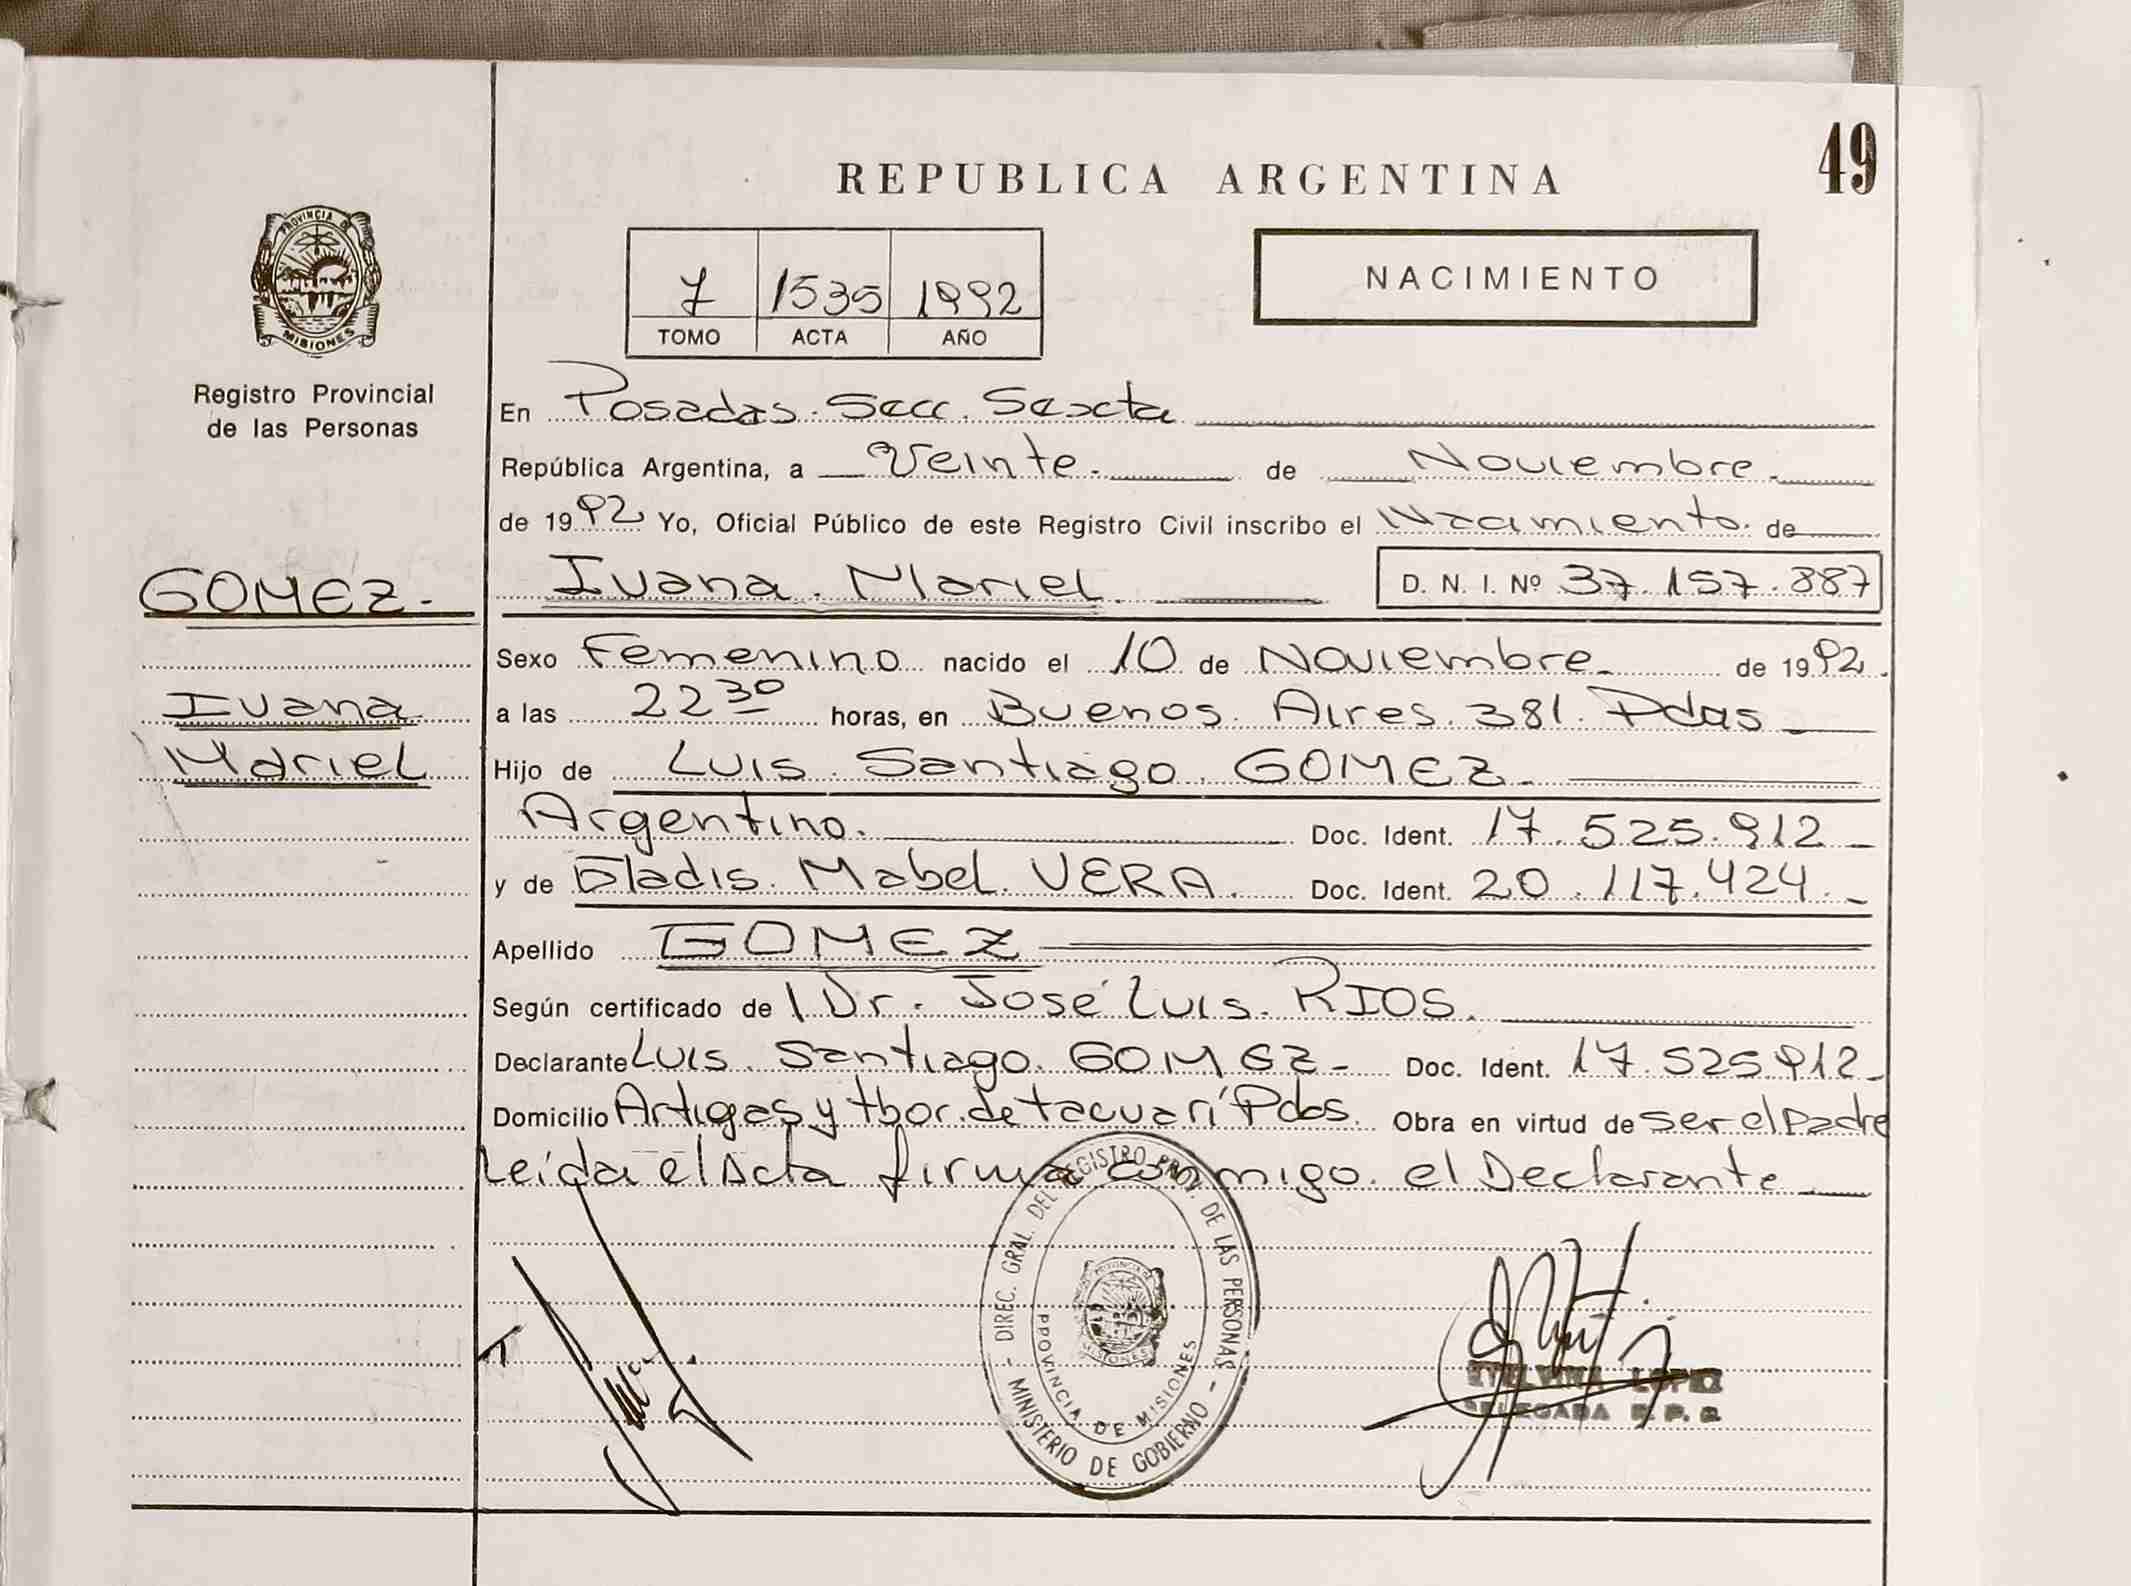 49
REPUBLICA ARGENTINA
PROVINCIA DE
MISIONES
Registro Provincial
de las Personas
7 1535 1992
TOMO ACTA AÑO
NACIMIENTO
En Posadas. Secc. Sexta
República Argentina, a Veinte. de Noviembre.
de 1992 Yo, Oficial Público de este Registro Civil inscribo el Nacimiento. de
GOMEZ.
Ivana. Mariel. D. N. I. Nº 37.157.887
Sexo Femenino nacido el 10 de Noviembre. de 1992.
Ivana
a las 22 30 horas, en Buenos. Aires. 381. Pdas
Mariel
Hijo de Luis. Santiago. GOMEZ.
Argentino. Doc. Ident. 17.525.912
y de Gladis. Mabel. VERA. Doc. Ident. 20.117.424.
Apellido GOMEZ
Según certificado de l Dr. José Luis. RIOS.
Declarante Luis. Santiago. GOMEZ Doc. Ident. 17.525.912
Domicilio Artigas y tbor. de tacuarí Pdas. Obra en virtud de ser el Padre
Leída el Acta firma conmigo. el Declarante
- DIREC. GRAL. DEL REGISTRO PROV. DE LAS PERSONAS -
MINISTERIO DE GOBIERNO
PROVINCIA DE MISIONES
MISIONES
LOPEZ
DELEGADA